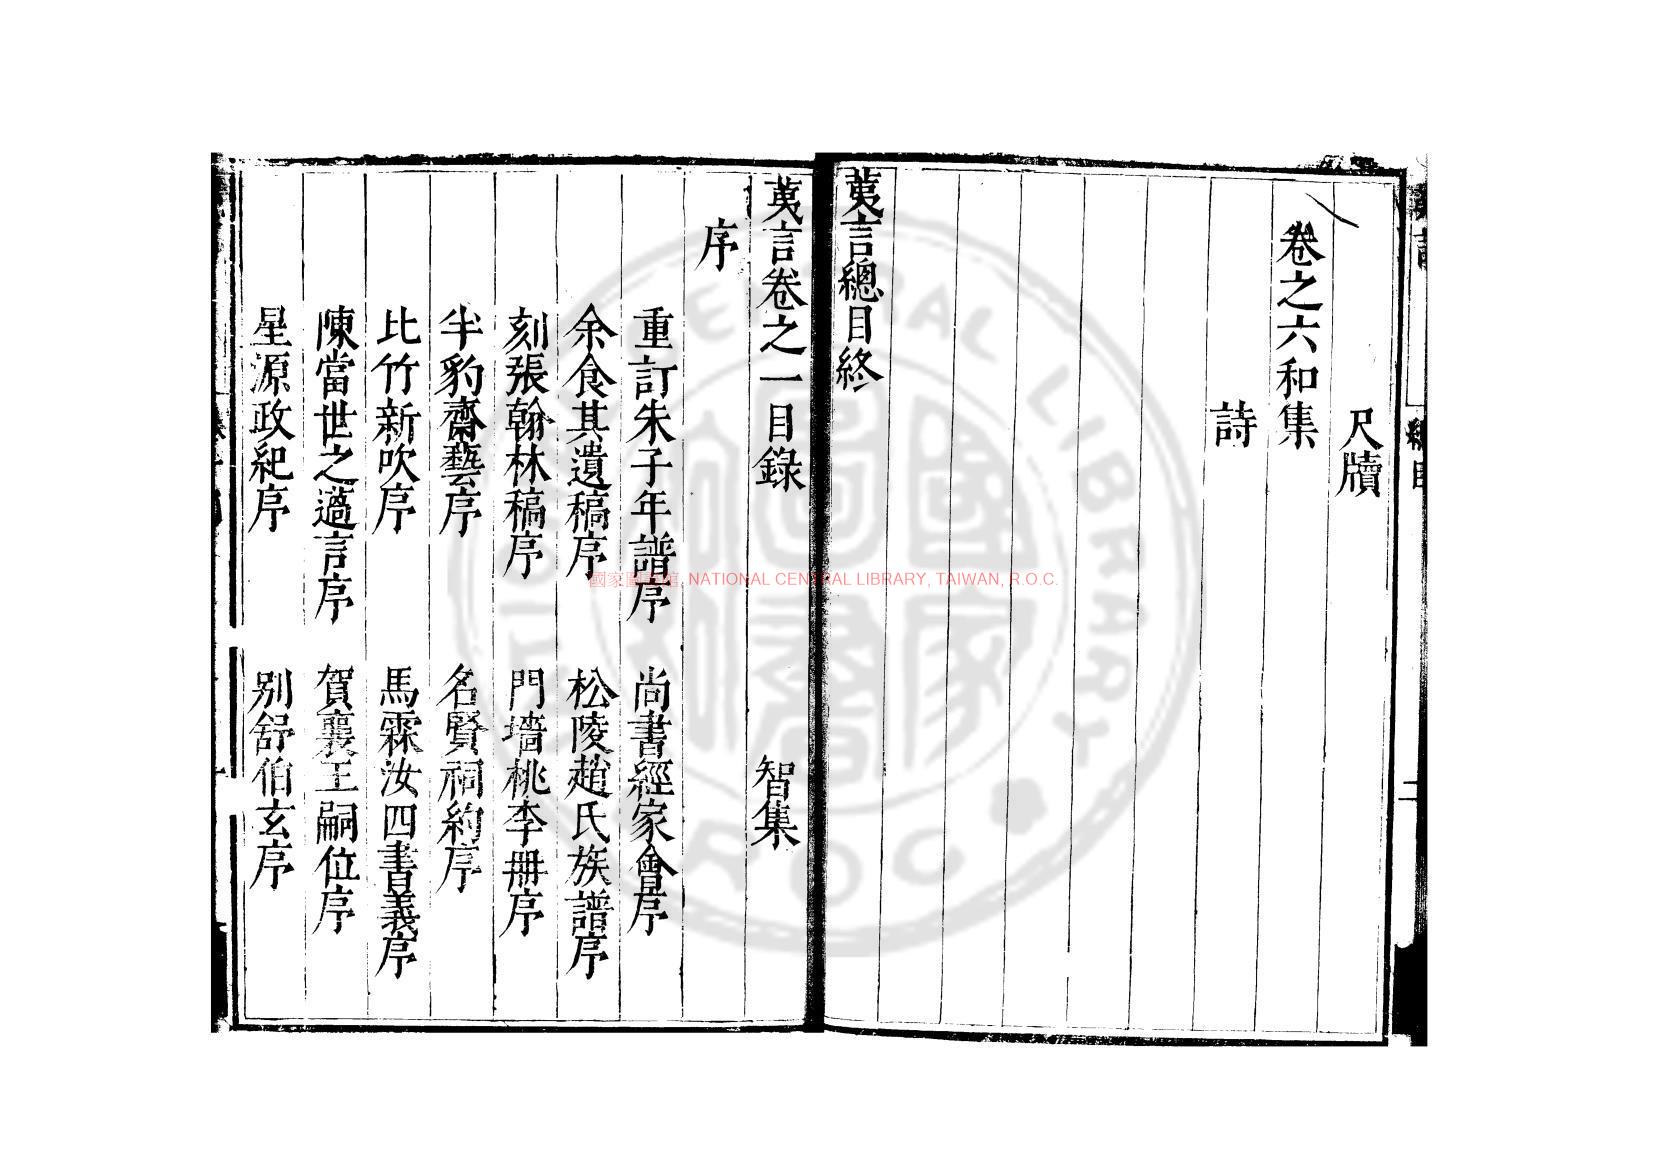 尺牘
卷之六和集
詩
荑言總目終
荑言卷之一目錄 智集
序
重訂朱子年譜序 尚書經家會序
余食其遺稿序 松陵趙氏族譜序
刻張翰林稿序 門墻桃李冊序
半豹齋藝序 名賢祠約序
比竹新吹序 馬霖汝四書義序
陳當世之邁言序 賀襄王嗣位序
星源政紀序 别舒伯玄序
國家圖書館, NATIONAL CENTRAL LIBRARY, TAIWAN, R.O.C.
NATIONAL CENTRAL LIBRARY
R.O.C.